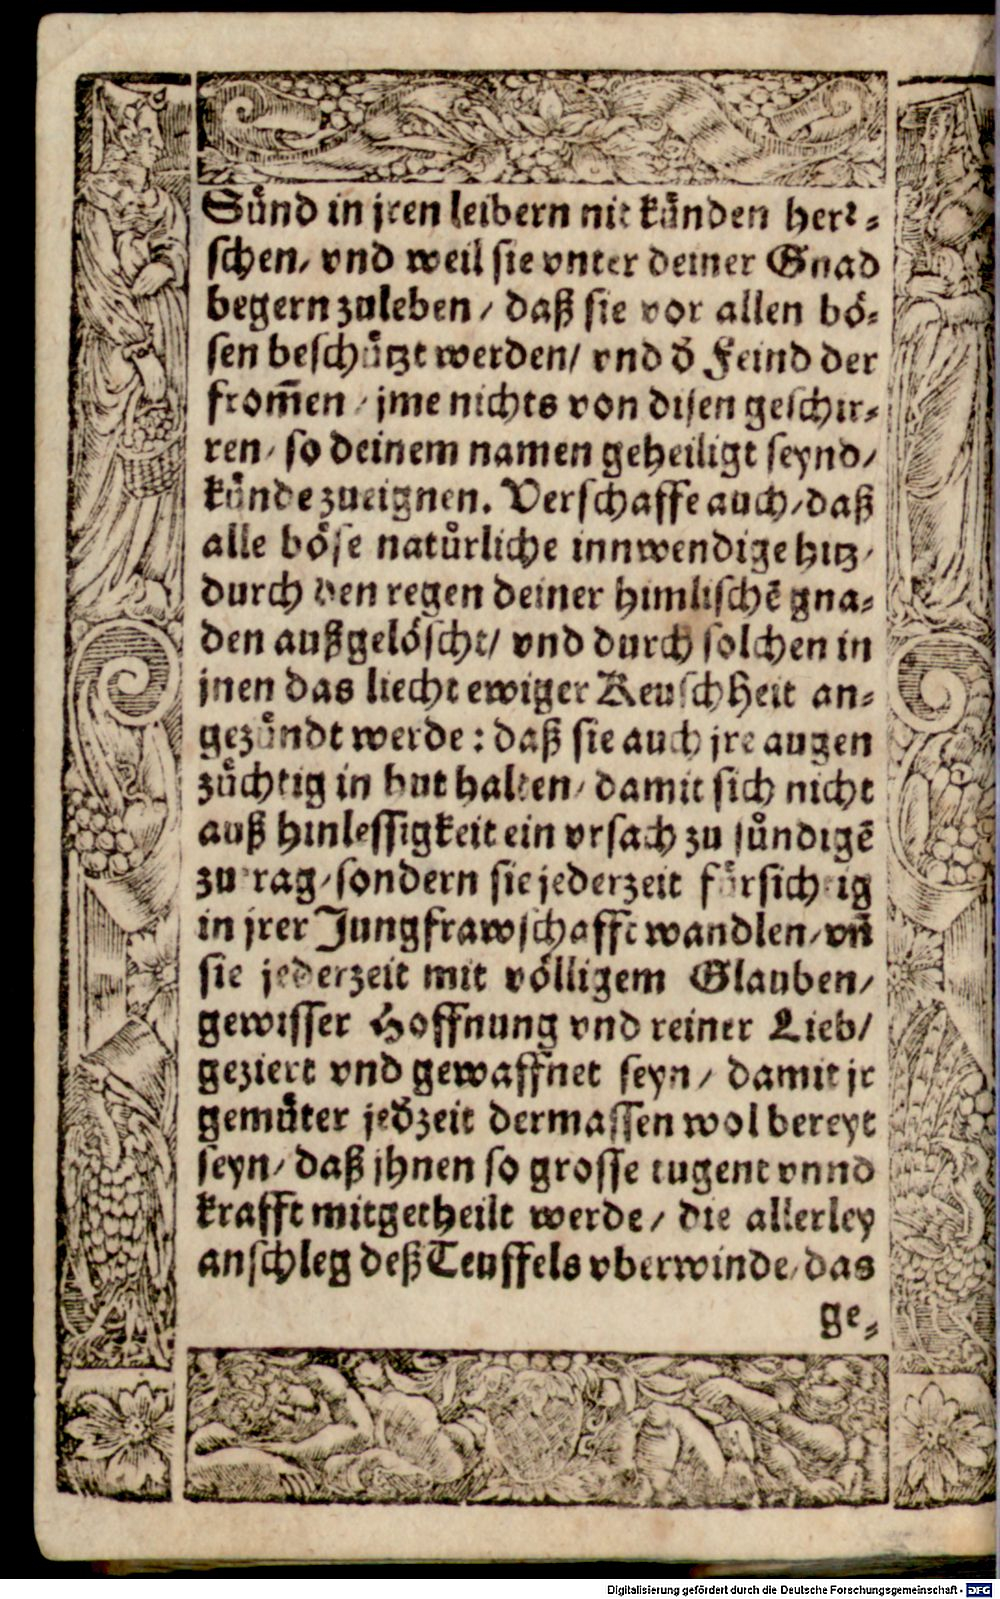 Sůnd in jren leibern nit kůnden herꝛ⸗
schen/ vnd weil sie vnter deiner Gnad
begern zuleben / daß sie vor allen bö⸗
sen beschůtzt werden/ vnd d̄ Feind der
from̄en / jme nichts von disen geschir⸗
ren/ so deinem namen geheiligt seynd/
kůnde zueignen. Verschaffe auch/ daß
alle böse natůrliche innwendige hitz/
durch den regen deiner himlischē gna⸗
den außgelöscht/ vnd durch solchen in
jnen das liecht ewiger Keuschheit an⸗
gezůndt werde : daß sie auch jre augen
zůchtig in hut halten/ damit sich nicht
auß hinlessigkeit ein vrsach zu sůndigē
zutrag/ sondern sie jederzeit fůrsichtig
in jrer Jungfrawschafft wandlen/ vn̄
sie jederzeit mit völligem Glauben/
gewisser Hoffnung vnd reiner Lieb/
geziert vnd gewaffnet seyn / damit jr
gemůter jed̄zeit dermassen wol bereyt
seyn/ daß jhnen so grosse tugent vnnd
krafft mitgetheilt werde / die allerley
anschleg deß Teuffels vberwinde/ das
ge⸗
Digitalisierung gefördert durch die Deutsche Forschungsgemeinschaft - DFG